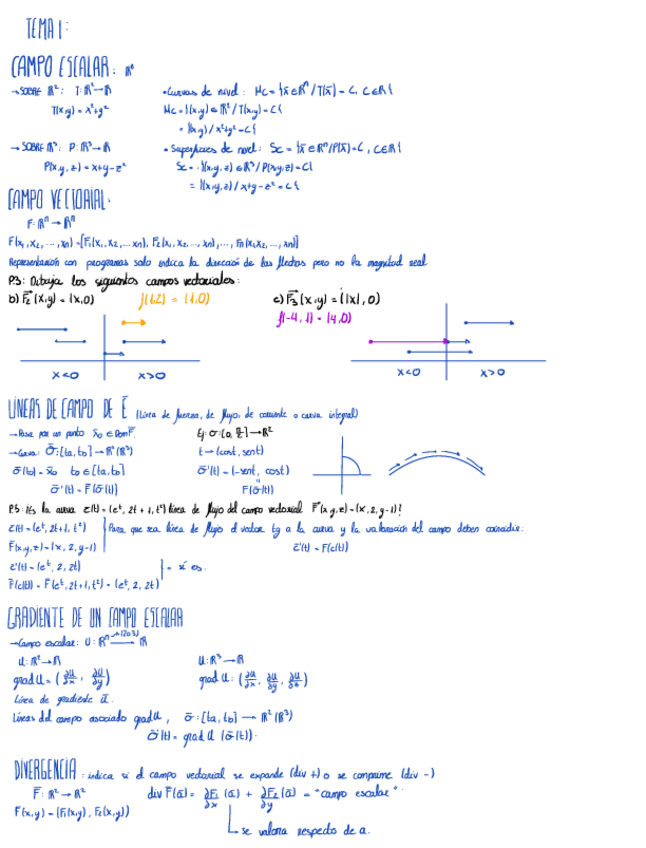 TEMA 1:
CAMPO ESCALAR: ℝⁿ
→ SOBRE ℝ²: T: ℝ² → ℝ
T(x,y) = x²+y²
• Curvas de nivel: Mc = {x̄ ∈ ℝⁿ / T(x̄) = C, C ∈ ℝ}
Mc = {(x,y) ∈ ℝ² / T(x,y) = C}
= {(x,y) / x²+y² = C}
→ SOBRE ℝ³: P: ℝ³ → ℝ
P(x,y,z) = x+y-z²
• Superficies de nivel: Sc = {x̄ ∈ ℝⁿ / P(x̄) = C, C ∈ ℝ}
Sc = {(x,y,z) ∈ ℝ³ / P(x,y,z) = C}
= {(x,y,z) / x+y-z² = C}
CAMPO VECTORIAL:
F: ℝⁿ → ℝⁿ
F(x₁, x₂, ..., xn) = [F₁(x₁, x₂, ... xn), F₂(x₁, x₂, ..., xn), ..., Fn(x₁, x₂, ..., xn)]
Representación con programas solo indica la dirección de las flechas pero no la magnitud real
P3: Dibuja los siguientes campos vectoriales:
b) F₂(x,y) = (x,0)
f(1,2) = (1,0)
c) F₃(x,y) = (|x|, 0)
f(-4, 1) = (4,0)
x<0 x>0
x<0 x>0
LÍNEAS DE CAMPO DE F̄ (línea de fuerza, de flujo, de corriente o curva integral)
→ Pasa por un punto x̄₀ ∈ Dom F̄.
→ Curva: σ̄: [ta, tb] → ℝ² (ℝ³)
σ̄(t₀) = x̄₀ t₀ ∈ [ta, tb]
σ̄'(t) = F̄(σ̄(t))
Ej: σ: [0, π/2] → ℝ²
t → (cost, sent)
σ̄'(t) = (-sent, cost)
"
F(σ̄(t))
P.5: ¿Es la curva c(t) = (eᵗ, 2t + 1, t²) línea de flujo del campo vectorial F(x,y,z) = (x, 2, y-1)?
c(t) = (eᵗ, 2t+1, t²)
F(x,y,z) = (x, 2, y-1)
Para que sea línea de flujo el vector tg a la curva y la valoración del campo deben coincidir:
c̄'(t) = F(c(t))
c'(t) = (eᵗ, 2, 2t)
F(c(t)) = F(eᵗ, 2t+1, t²) = (eᵗ, 2, 2t)
= sí es.
GRADIENTE DE UN CAMPO ESCALAR
→ Campo escalar: U: ℝⁿ → ℝ
(2 o 3)
U: ℝ² → ℝ
grad U = (∂U/∂x, ∂U/∂y)
U: ℝ³ → ℝ
grad U: (∂U/∂x, ∂U/∂y, ∂U/∂z)
Línea de gradiente ū.
Líneas del campo asociado grad U, σ̄: [ta, tb] → ℝ² (ℝ³)
σ̄'(t) = grad U (σ̄(t)).
DIVERGENCIA: indica si el campo vectorial se expande (div +) o se comprime (div -)
F̄: ℝ² → ℝ²
F(x,y) = (F₁(x,y), F₂(x,y))
div F̄(ā) = ∂F₁/∂x (ā) + ∂F₂/∂y (ā) = "campo escalar"
se valora respecto de a.